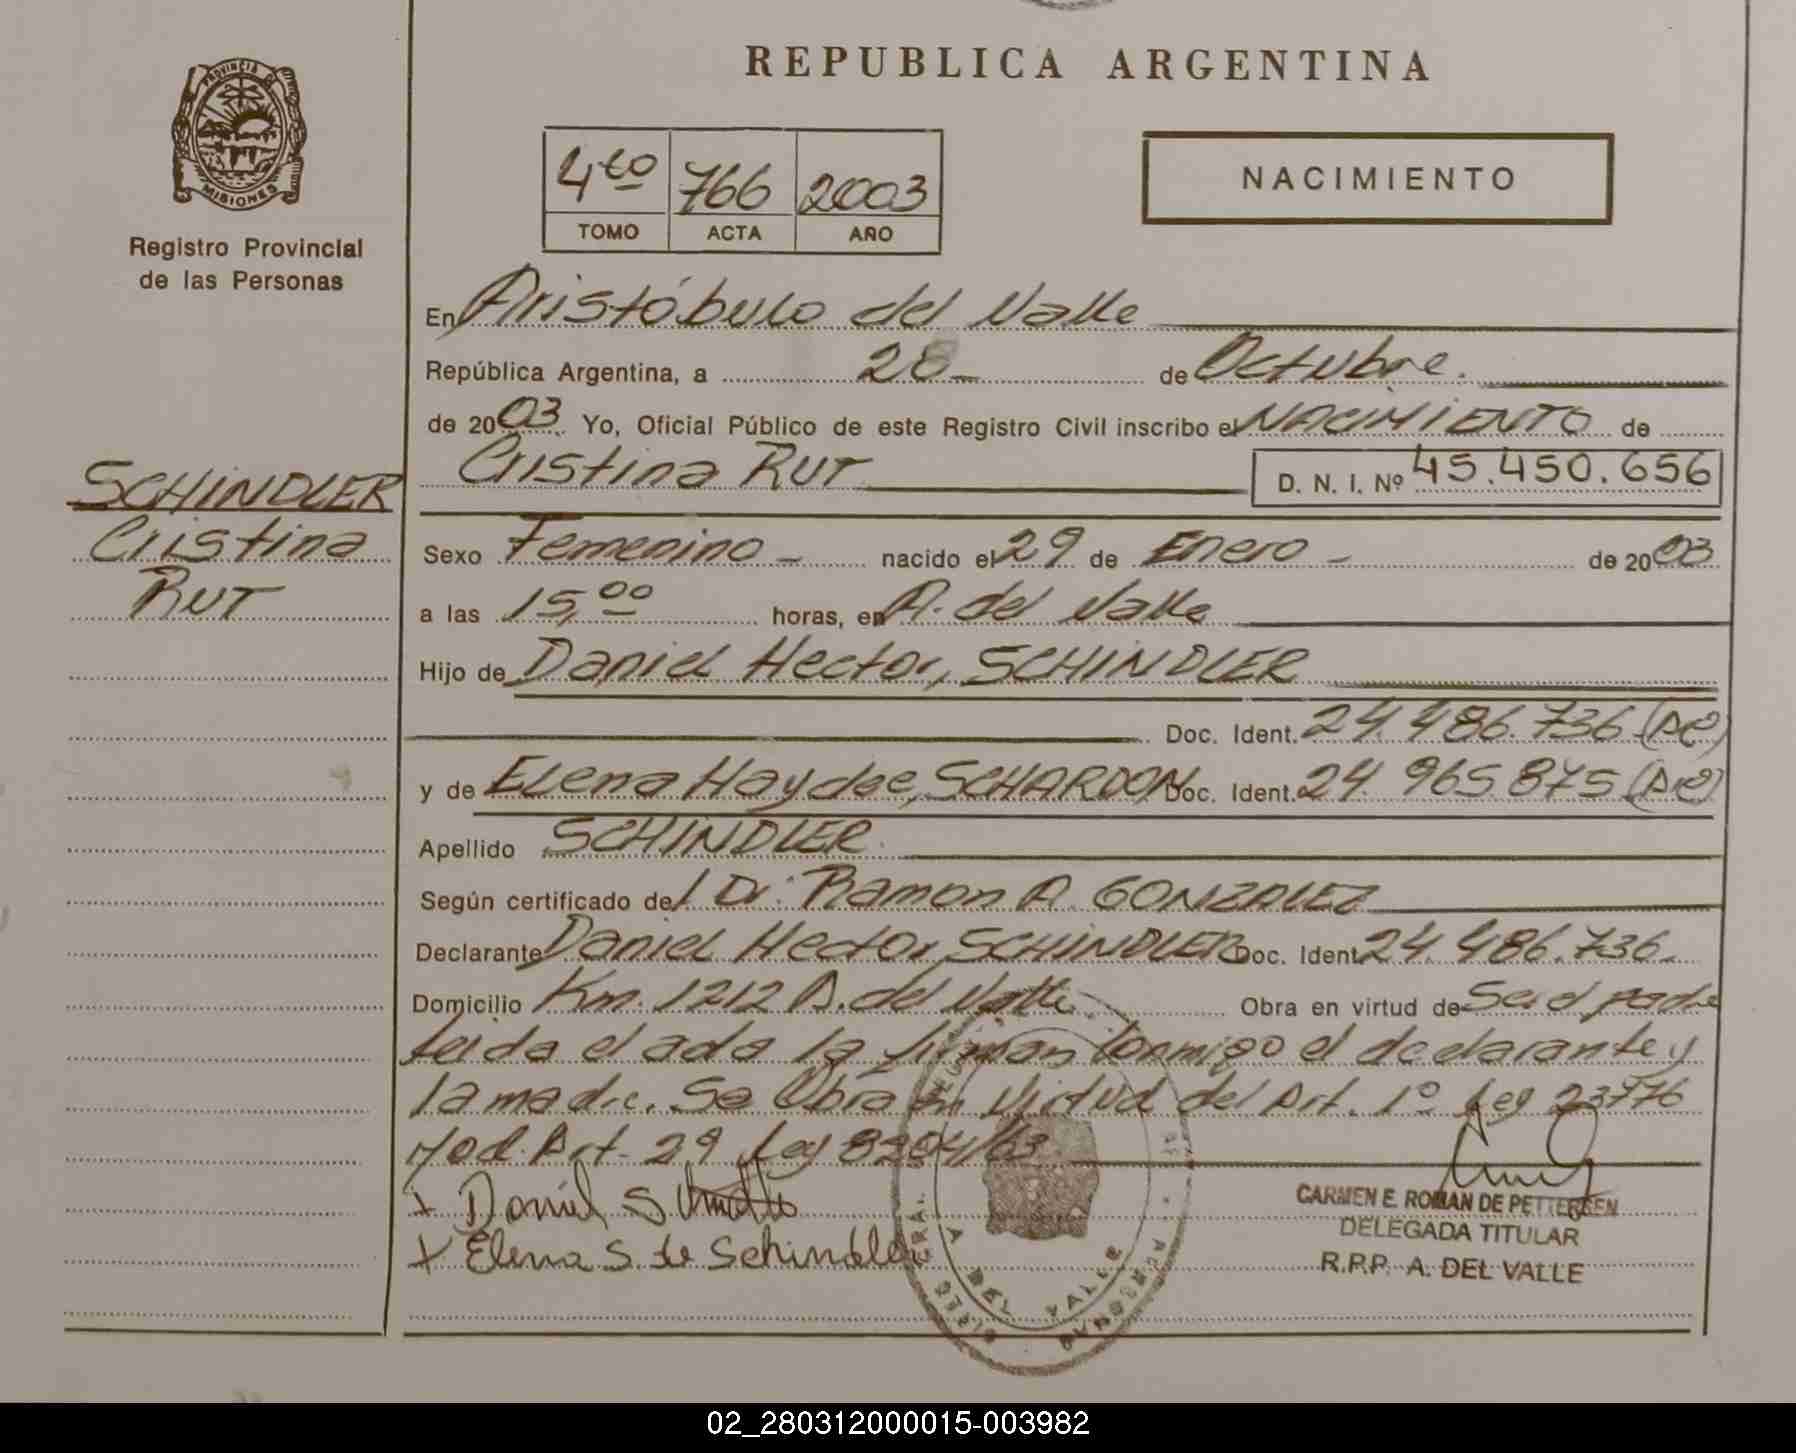 REPUBLICA ARGENTINA
PROVINCIA DE
MISIONES
Registro Provincial
de las Personas
4to 766 2003
TOMO ACTA AÑO
NACIMIENTO
SCHINDLER
Cristina
Rut
En Aristóbulo del Valle
República Argentina, a 28 de Octubre.
de 2003. Yo, Oficial Público de este Registro Civil inscribo el NACIMIENTO de
Cristina Rut D. N. I. Nº 45.450.656
Sexo Femenino - nacido el 29 de Enero - de 2003
a las 15,00 horas, en A. del Valle
Hijo de Daniel Hector, SCHINDLER
Doc. Ident. 24.486.736
y de Elena Haydee, SCHARDON Doc. Ident. 24.965.875
Apellido SCHINDLER.
Según certificado del Dr. Ramon A. GONZALEZ
Declarante Daniel Hector, SCHINDLER Doc. Ident. 24.486.736.
Domicilio Km. 1212 A. del Valle. Obra en virtud de Ser el padre
Leida el acta la firman conmigo el declarante y
la madre. Se Obra en Virtud del Art. 1º Ley 23776
Mod. Art. 29 Ley 8204/63
x Daniel
x Elena S. de Schindler
CARMEN E. ROMAN DE PETTERSEN
DELEGADA TITULAR
R.P.P. A. DEL VALLE
A DEL VALLE
02_280312000015-003982